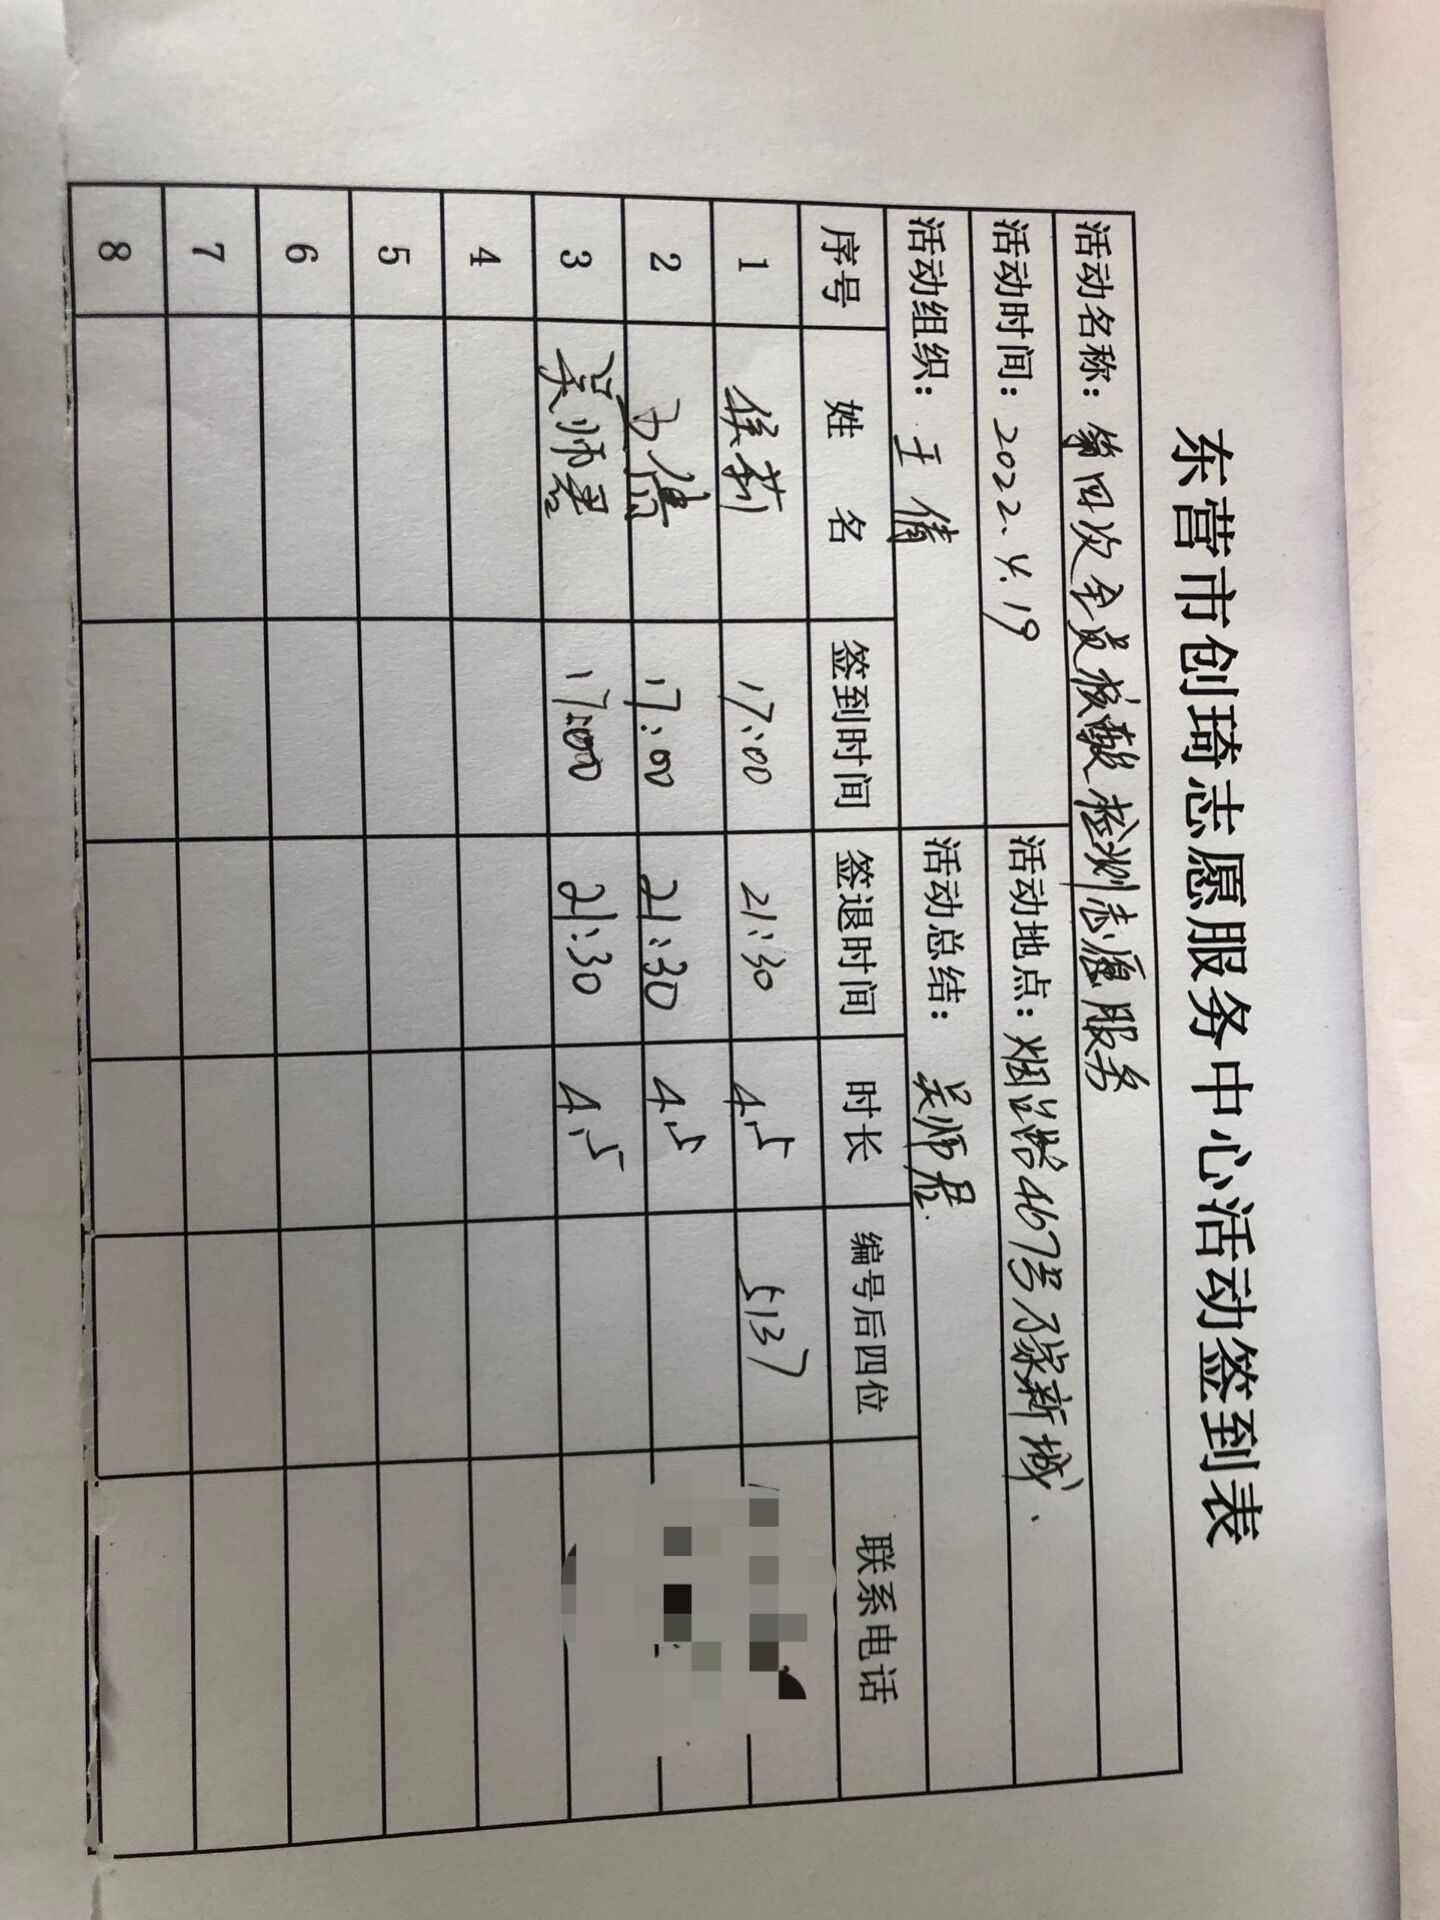 东营市创琦志愿服务中心活动签到表
活动名称：第四次全员核酸检测志愿服务
活动时间：2022.4.19 活动地点：烟台路467号绿新城.
活动组织：王倩 活动总结：吴师君.
序号 姓名 签到时间 签退时间 时长 编号后四位 联系电话
1 侯莉 17:00 21:30 4.5 5137
2 17:00 21:30 4.5
3 吴师君 17:00 21:30 4.5
4
5
6
7
8